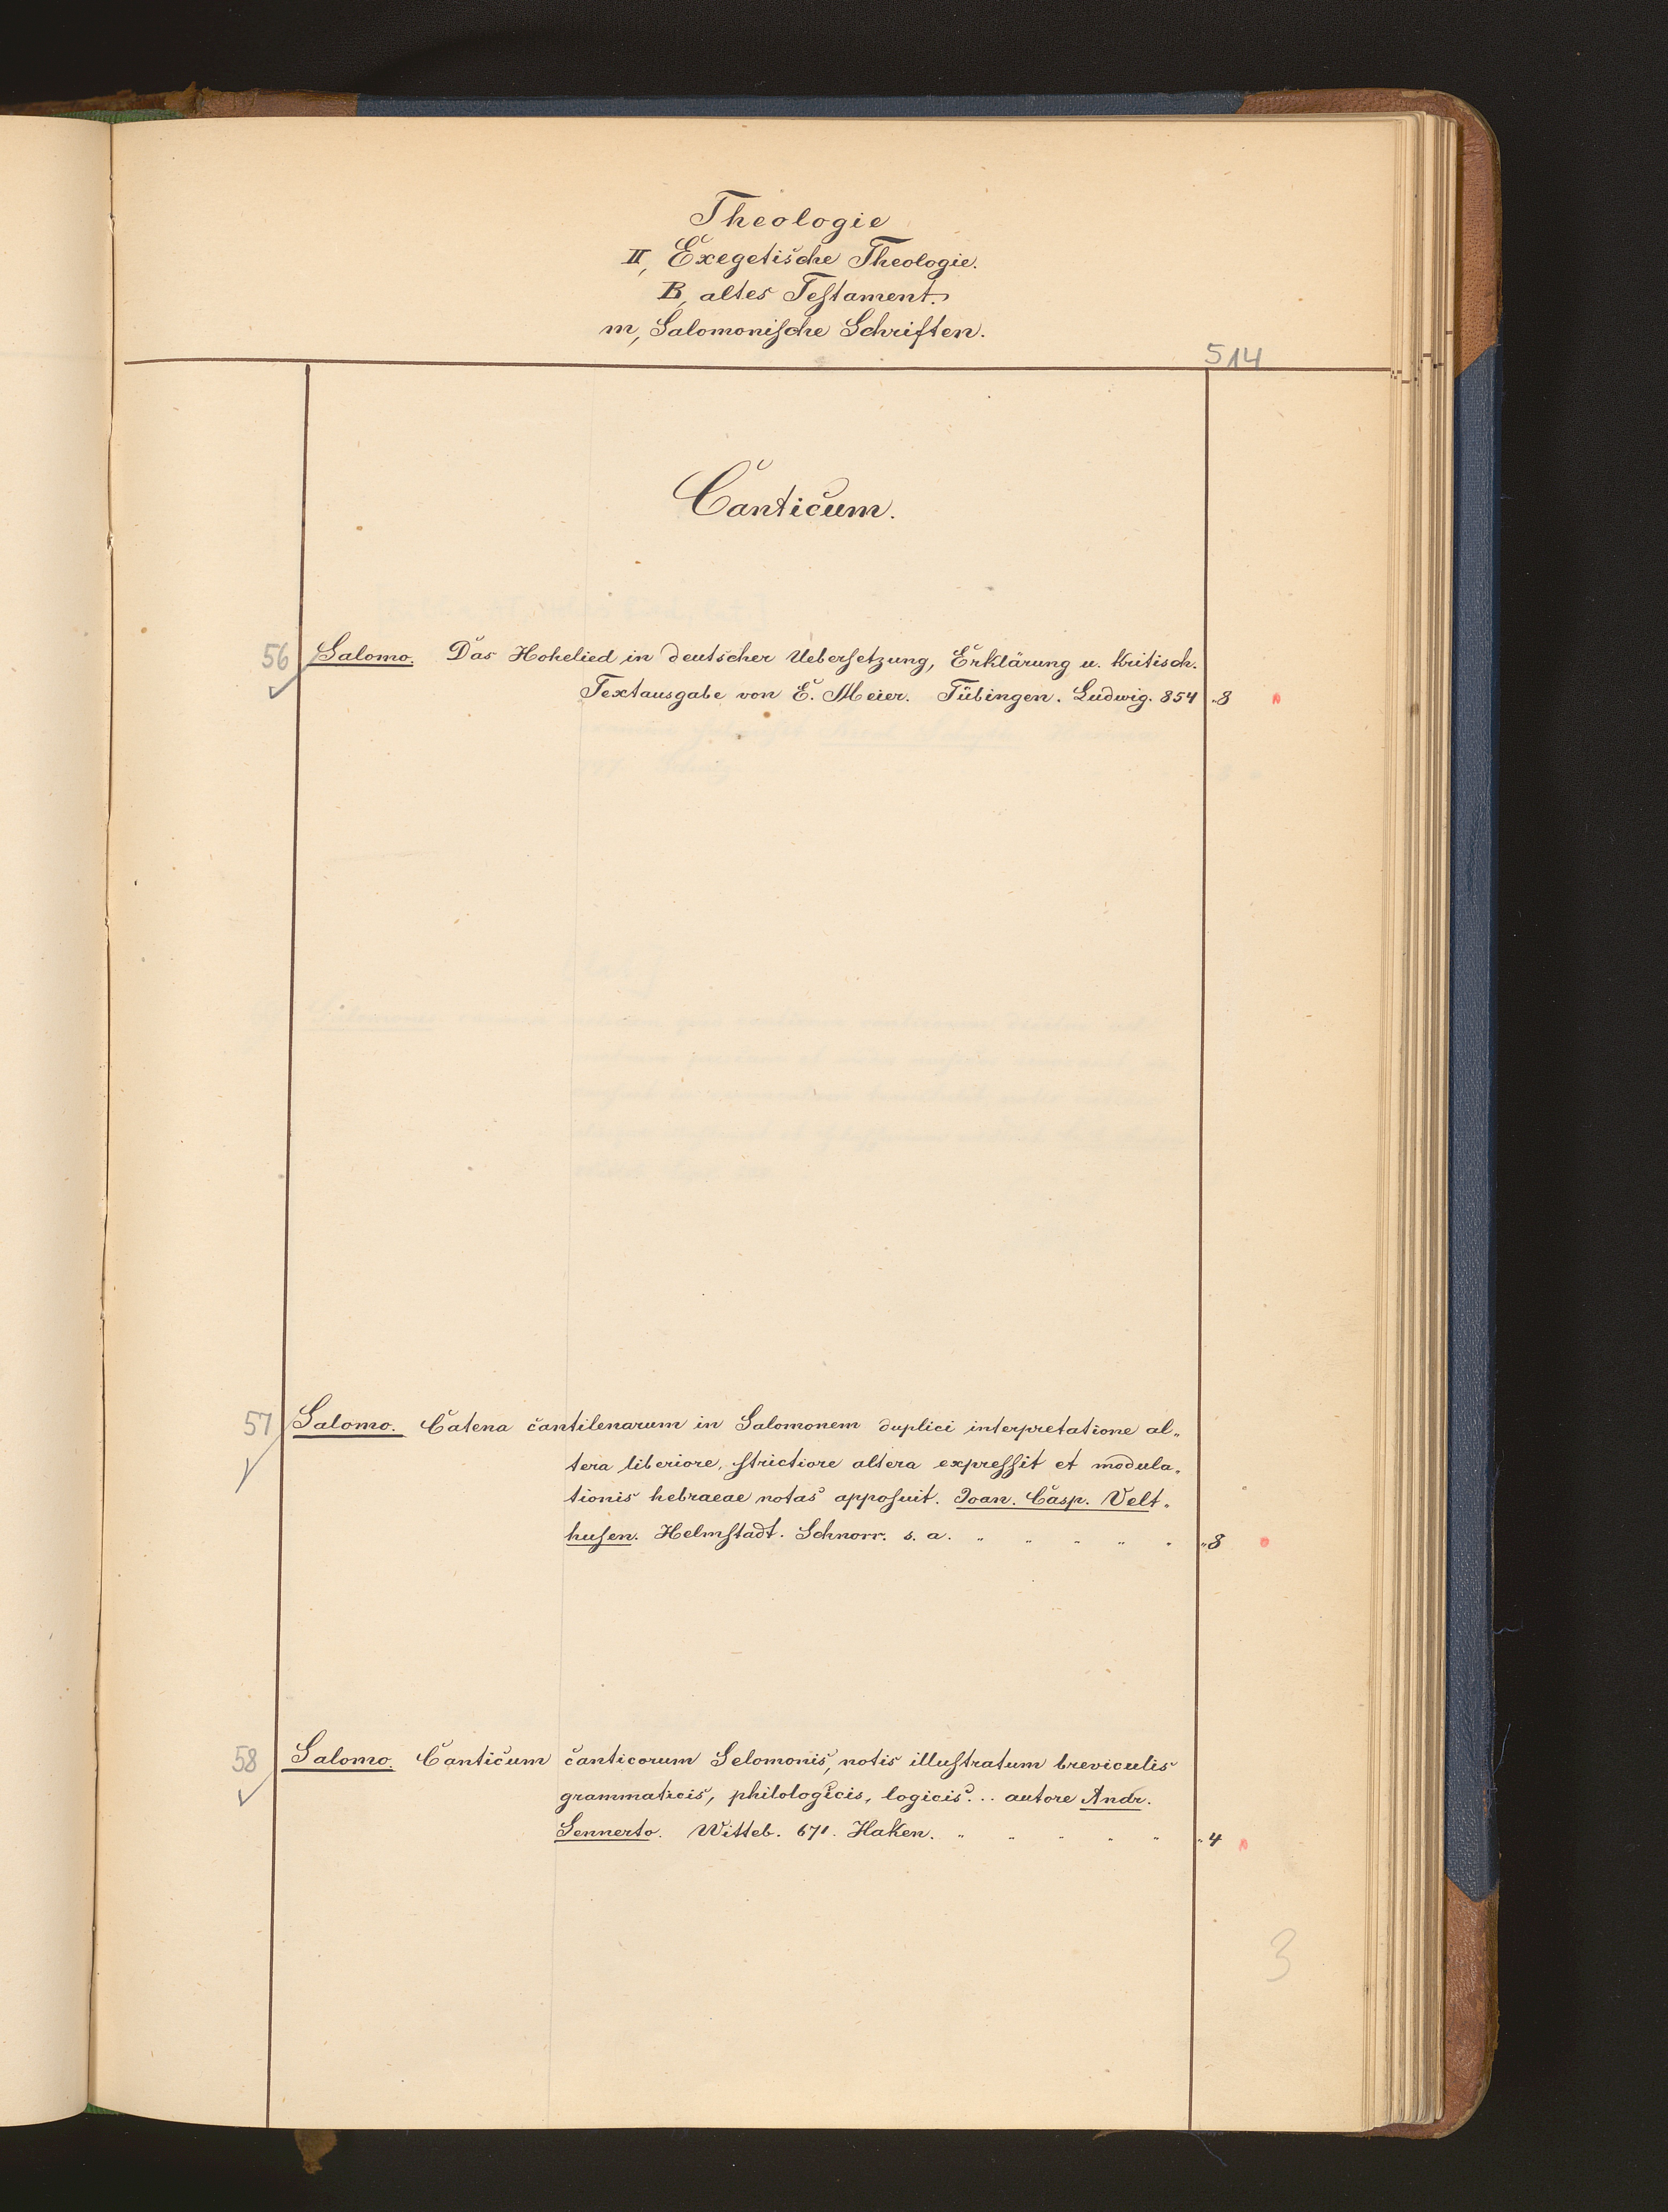 Theologie
II, Exegetische Theologie.
B, altes Testament.
m, Salomonische Schriften.
514
Canticum.
56 Salomo. Das Hohelied in deutscher Uebersetzung, Erklärung u. kritisch.
Textausgabe von E. Meier. Tübingen. Ludwig. 854 „8
57 Salomo. Catena cantilenarum in Salomonem duplici interpretatione al„
tera liberiore, strictiore altera expressit et modula„
tionis hebraeae notas apposuit. Joan. Casp. Velt„
husen. Helmstadt. Schnorr. s. a. „ „ „ „ „ „8
58 Salomo. Canticum canticorum Selomonis, notis illustratum breviculis
grammaticis, philologicis, logicis... autore Andr.
Sennerto. Witteb. 671. Haken. „ „ „ „ „ „4
3